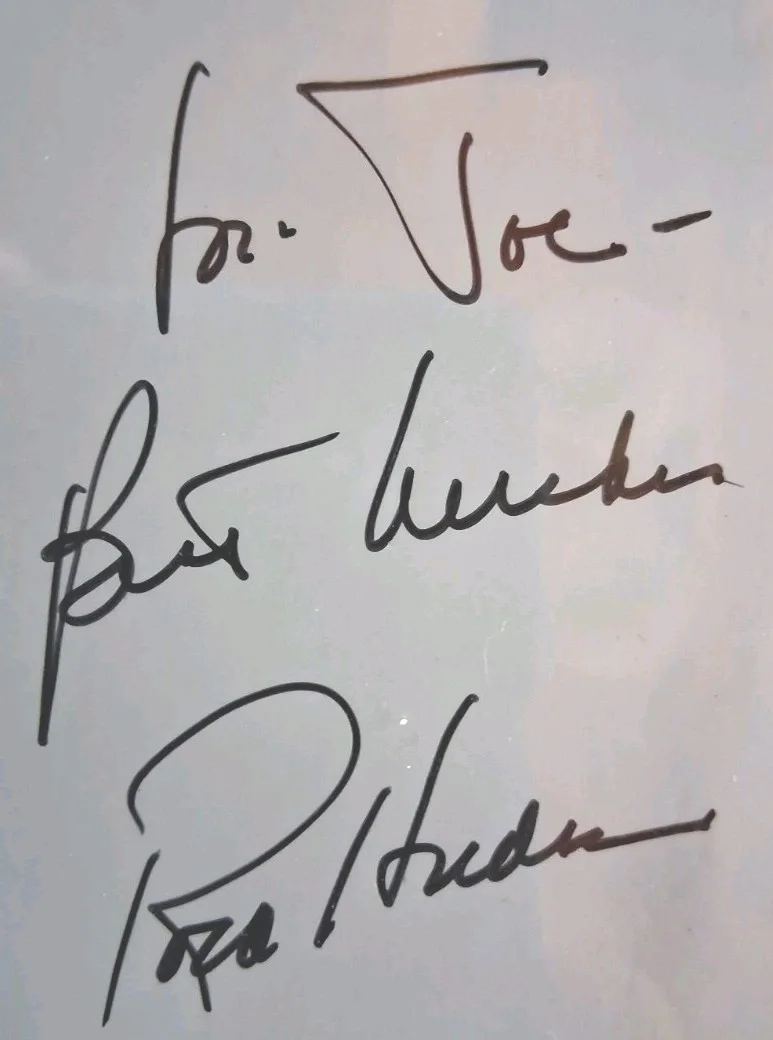 for Joe -
Best wishes
Rock Hudson